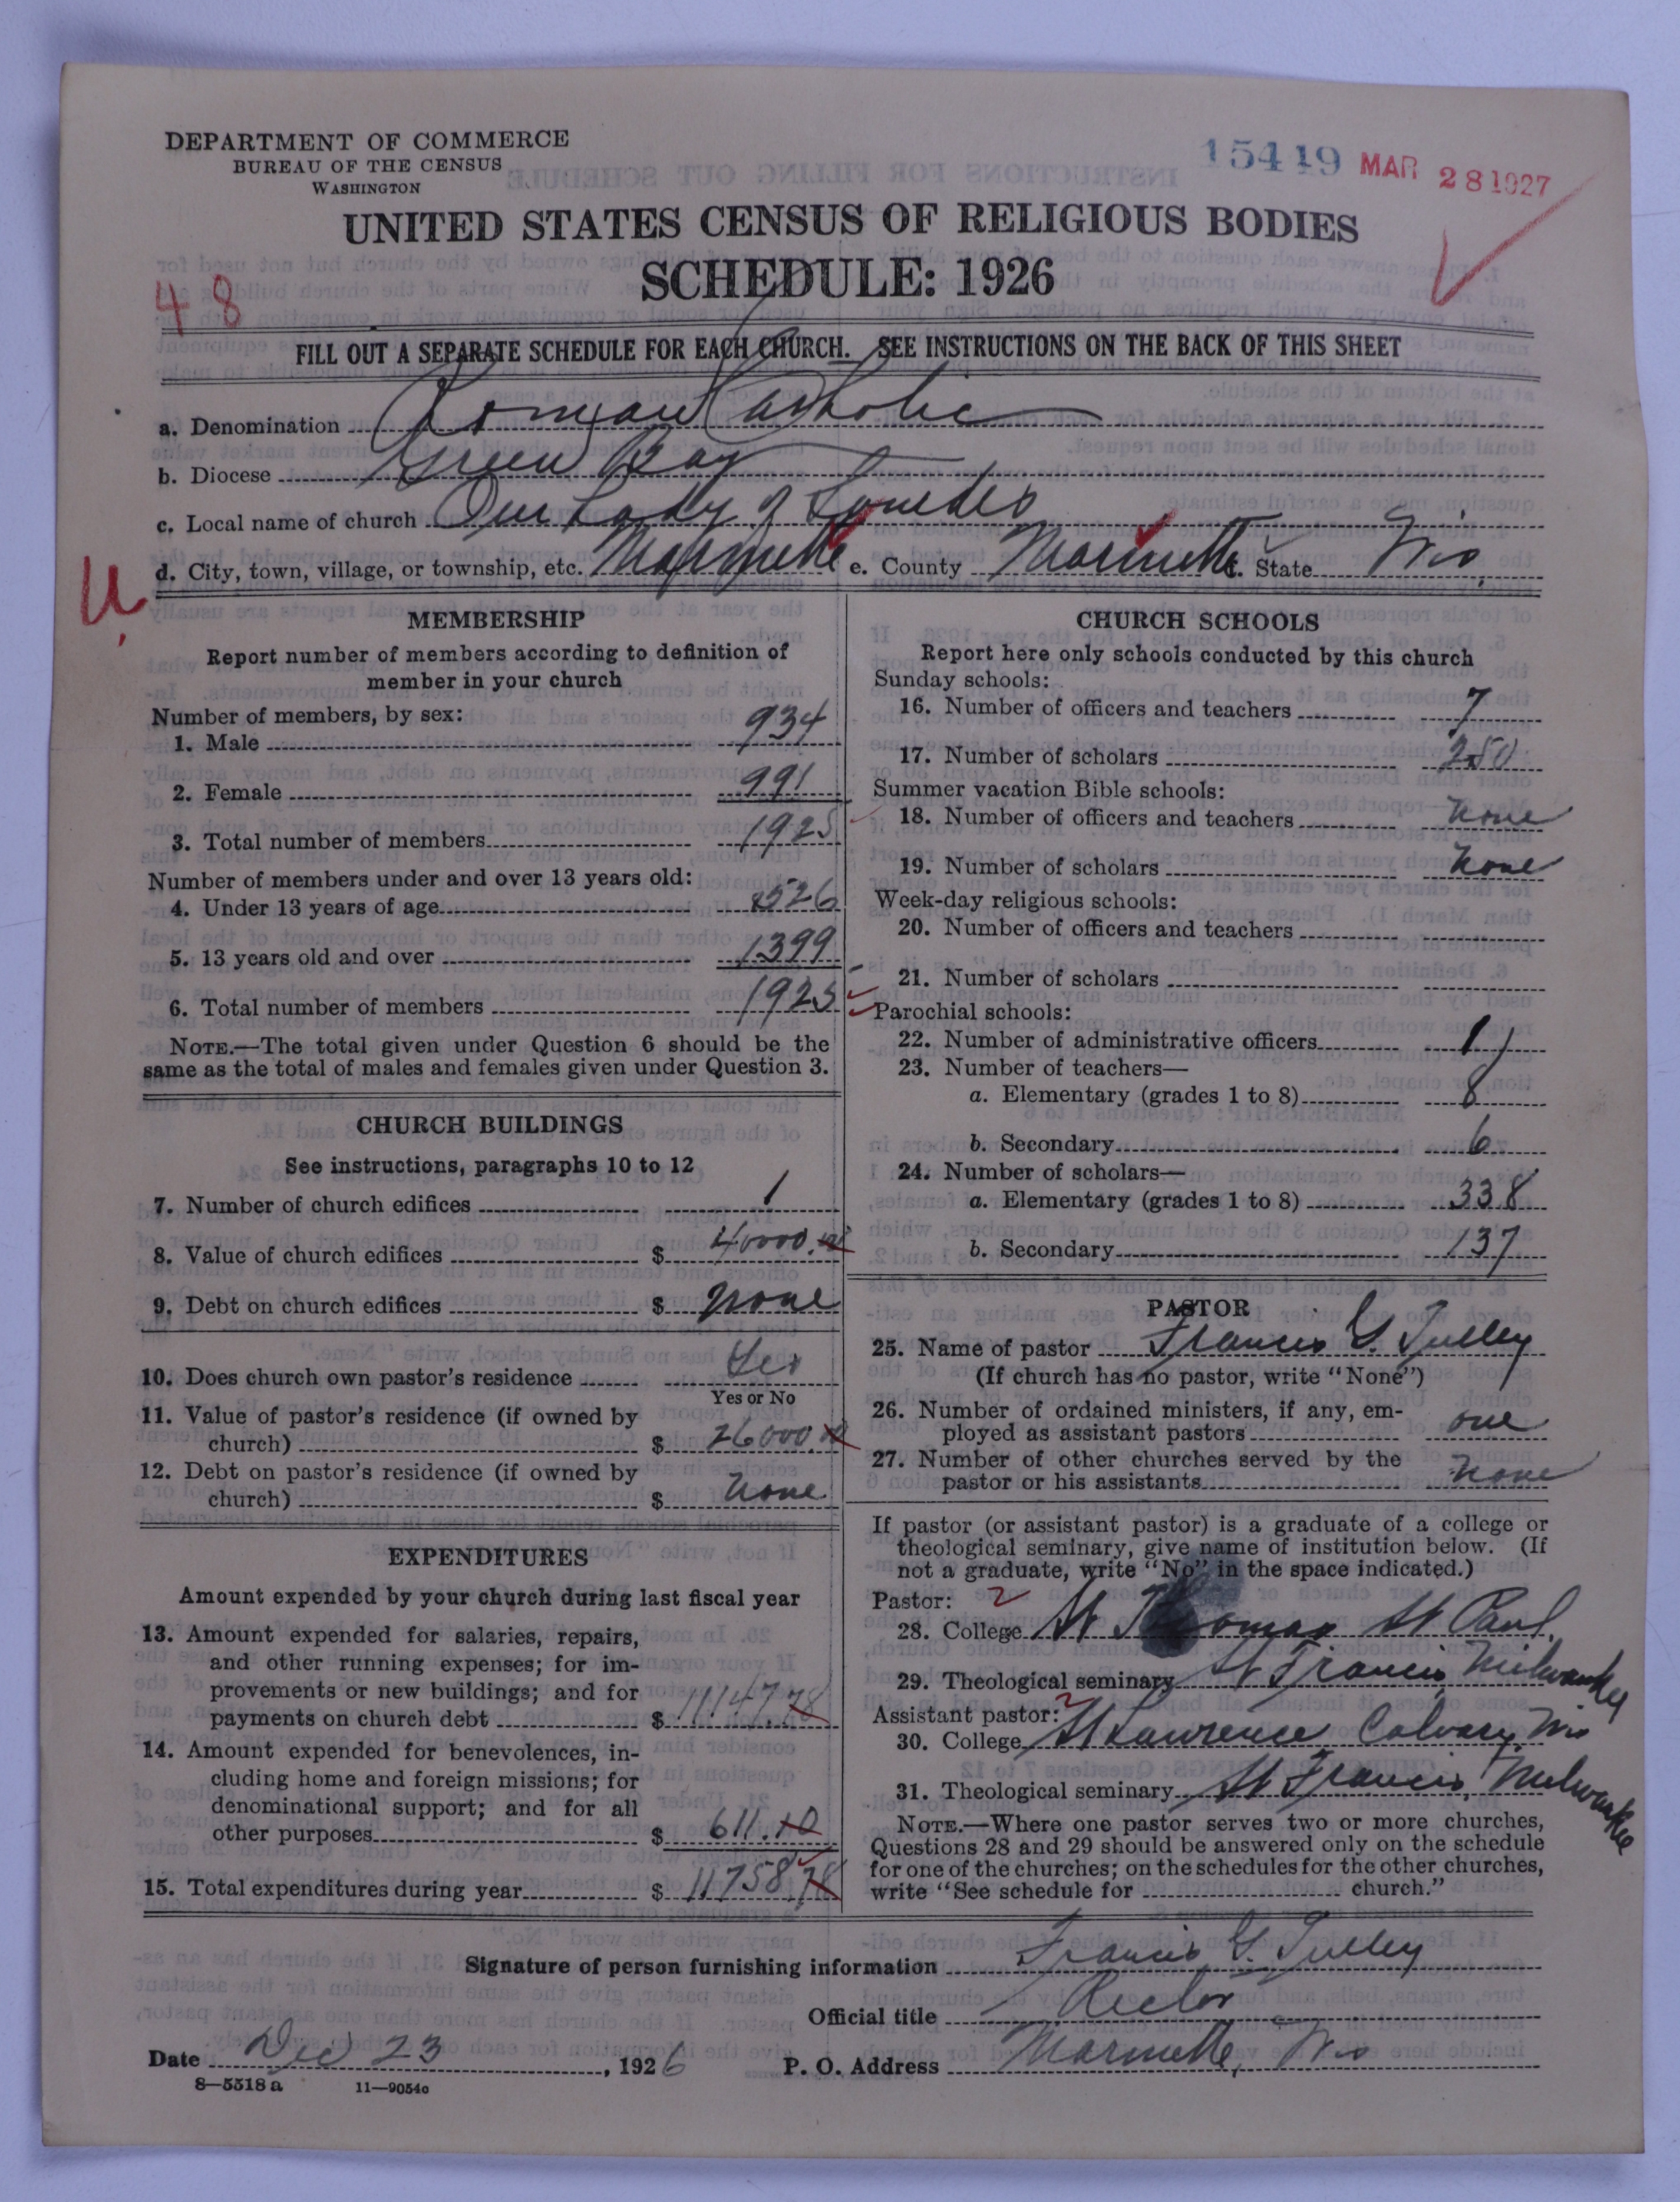 DEPARTMENT OF COMMERCE
BUREAU OF THE CENSUS
WASHINGTON
15419 MAR 28 1927
UNITED STATES CENSUS OF RELIGIOUS BODIES
SCHEDULE: 1926
48
FILL OUT A SEPARATE SCHEDULE FOR EACH CHURCH. SEE INSTRUCTIONS ON THE BACK OF THIS SHEET
a. Denomination Roman Catholic
b. Diocese Green Bay
c. Local name of church Our Lady of Lourdes
d. City, town, village, or township, etc. Marinette e. County Marinette f. State Wis.
U
MEMBERSHIP
Report number of members according to definition of
member in your church
Number of members, by sex:
1. Male 934
2. Female 991
3. Total number of members 1925
Number of members under and over 13 years old:
4. Under 13 years of age 526
5. 13 years old and over 1399
6. Total number of members 1925
NOTE.—The total given under Question 6 should be the
same as the total of males and females given under Question 3.
CHURCH BUILDINGS
See instructions, paragraphs 10 to 12
7. Number of church edifices 1
8. Value of church edifices $ 40000.00
9. Debt on church edifices $ none
10. Does church own pastor's residence Yes
Yes or No
11. Value of pastor's residence (if owned by
church) $ 26000 00
12. Debt on pastor's residence (if owned by
church) $ None
EXPENDITURES
Amount expended by your church during last fiscal year
13. Amount expended for salaries, repairs,
and other running expenses; for im-
provements or new buildings; and for
payments on church debt $ 11147.78
14. Amount expended for benevolences, in-
cluding home and foreign missions; for
denominational support; and for all
other purposes $ 611.10
15. Total expenditures during year $ 11758.78
CHURCH SCHOOLS
Report here only schools conducted by this church
Sunday schools:
16. Number of officers and teachers 7
17. Number of scholars 250
Summer vacation Bible schools:
18. Number of officers and teachers None
19. Number of scholars None
Week-day religious schools:
20. Number of officers and teachers
21. Number of scholars
Parochial schools:
22. Number of administrative officers 1
23. Number of teachers—
a. Elementary (grades 1 to 8) 8
b. Secondary 6
24. Number of scholars—
a. Elementary (grades 1 to 8) 338
b. Secondary 137
PASTOR
25. Name of pastor Francis G. Tulley
(If church has no pastor, write "None")
26. Number of ordained ministers, if any, em-
ployed as assistant pastors one
27. Number of other churches served by the
pastor or his assistants None
If pastor (or assistant pastor) is a graduate of a college or
theological seminary, give name of institution below. (If
not a graduate, write "No" in the space indicated.)
Pastor:
28. College St Thomas St Paul.
29. Theological seminary St Francis, Milwaukee
Assistant pastor:
30. College St Lawrence Calvary, Wis
31. Theological seminary St Francis, Milwaukee
NOTE.—Where one pastor serves two or more churches,
Questions 28 and 29 should be answered only on the schedule
for one of the churches; on the schedules for the other churches,
write "See schedule for church."
Signature of person furnishing information Francis G. Tulley
Official title Rector
Date Dec 23, 1926 P. O. Address Marinette, Wis
8—5518 a 11—9054c